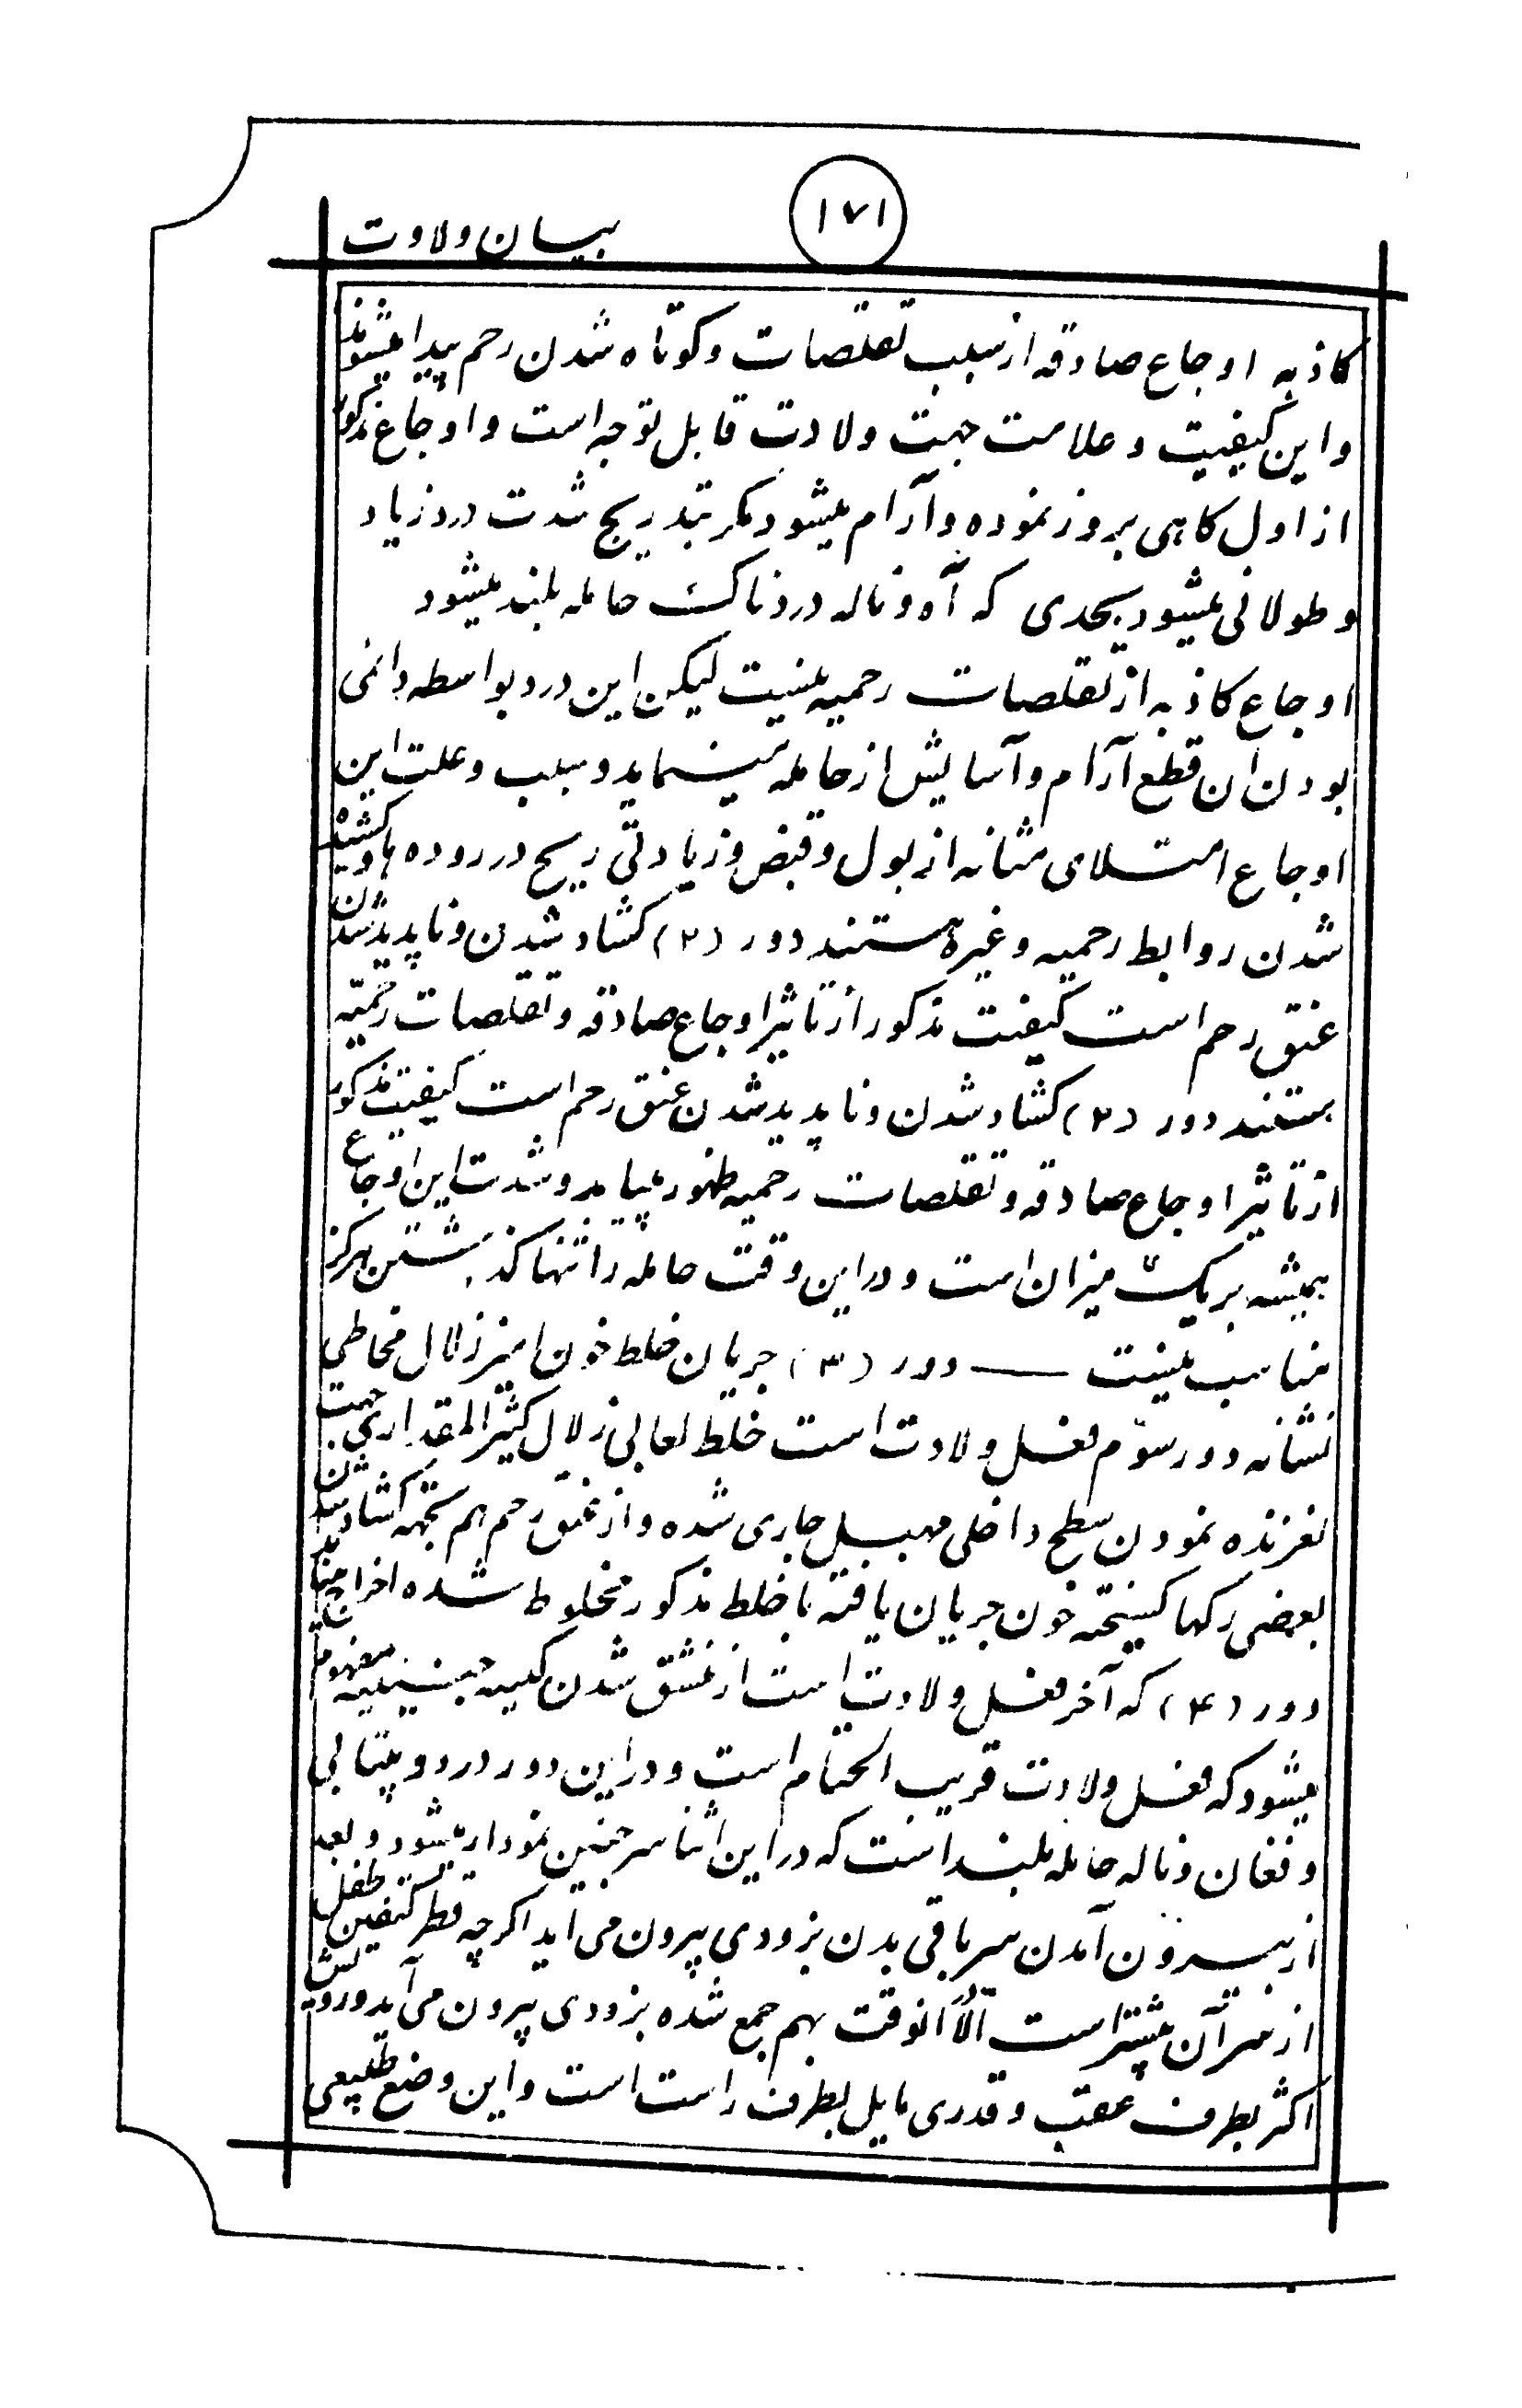 ۱۷۱
بیان ولادت
کاذبه اوجاع صادقه از سبب تقلصات و کوتاه شدن رحم پیدا میشوند
و این کیفیت و علامت جهت ولادت قابل توجه است و اوجاع مذکور
از اول کاهی بروز نموده و آرام میشود مکر بتدریج شدت درد زیاد
و طولانی میشود بحدی که آه و ناله دردناک حامله بلند میشود
اوجاع کاذبه از تقلصات رحمیه نیست لیکن این درد بواسطه دائمی
بودن ان قطع آرام و آسایش از حامله مینماید و سبب و علت این
اوجاع امتلای مثانه از بول و قبض و زیادتی ریح در روده ها و کشیده
شدن روابط رحمیه و غیره هستند دور (۲) کشاد شدن و ناپدید شدن
عنق رحم است کیفیت مذکور از تاثیر اوجاع صادقه و تقلصات رحمیّه
هستند دور (۲) کشاد شدن و ناپدید شدن عنق رحم است کیفیت مذکور
از تاثیر اوجاع صادقه و تقلصات رحمیه ظهور میابد و شدت این اوجاع
همیشه بر یک میزان است و در این وقت حامله را تنها کذاشتن هرکز
مناسب نیست — دور (۳) جریان خلط خون امیز زلال مخاطی
نشانه دور سوّم فعل ولادت است خلط لعابی زلال کثیر المقداری جهت
لغزنده نمودن سطح داخلی مهبل جاری شده و از عنق رحم هم بجهه کشاد شدن
بعضی رکها کسیخته خون جریان یافته با خلط مذکور مخلوط شده اخراج میابد
دور (۴) که آخر فعل ولادت است از منشق شدن کیسه جنینیه مفهوم
میشود که فعل ولادت قریب الختام است و در این دور درد و بیتابی
و فغان و ناله حامله بلند است که در این اثنا سر جنین نمودار میشود و بعد
از بیرون آمدن سر باقی بدن بزودی بیرون می اید اکرچه قطر کتفین طفل
از سر آن بیشتر است الّا انوقت بهم جمع شده بزودی بیرون می آید و رویش
اکثر بطرف عقب و قدری مایل بطرف راست است و این وضع طبیعی